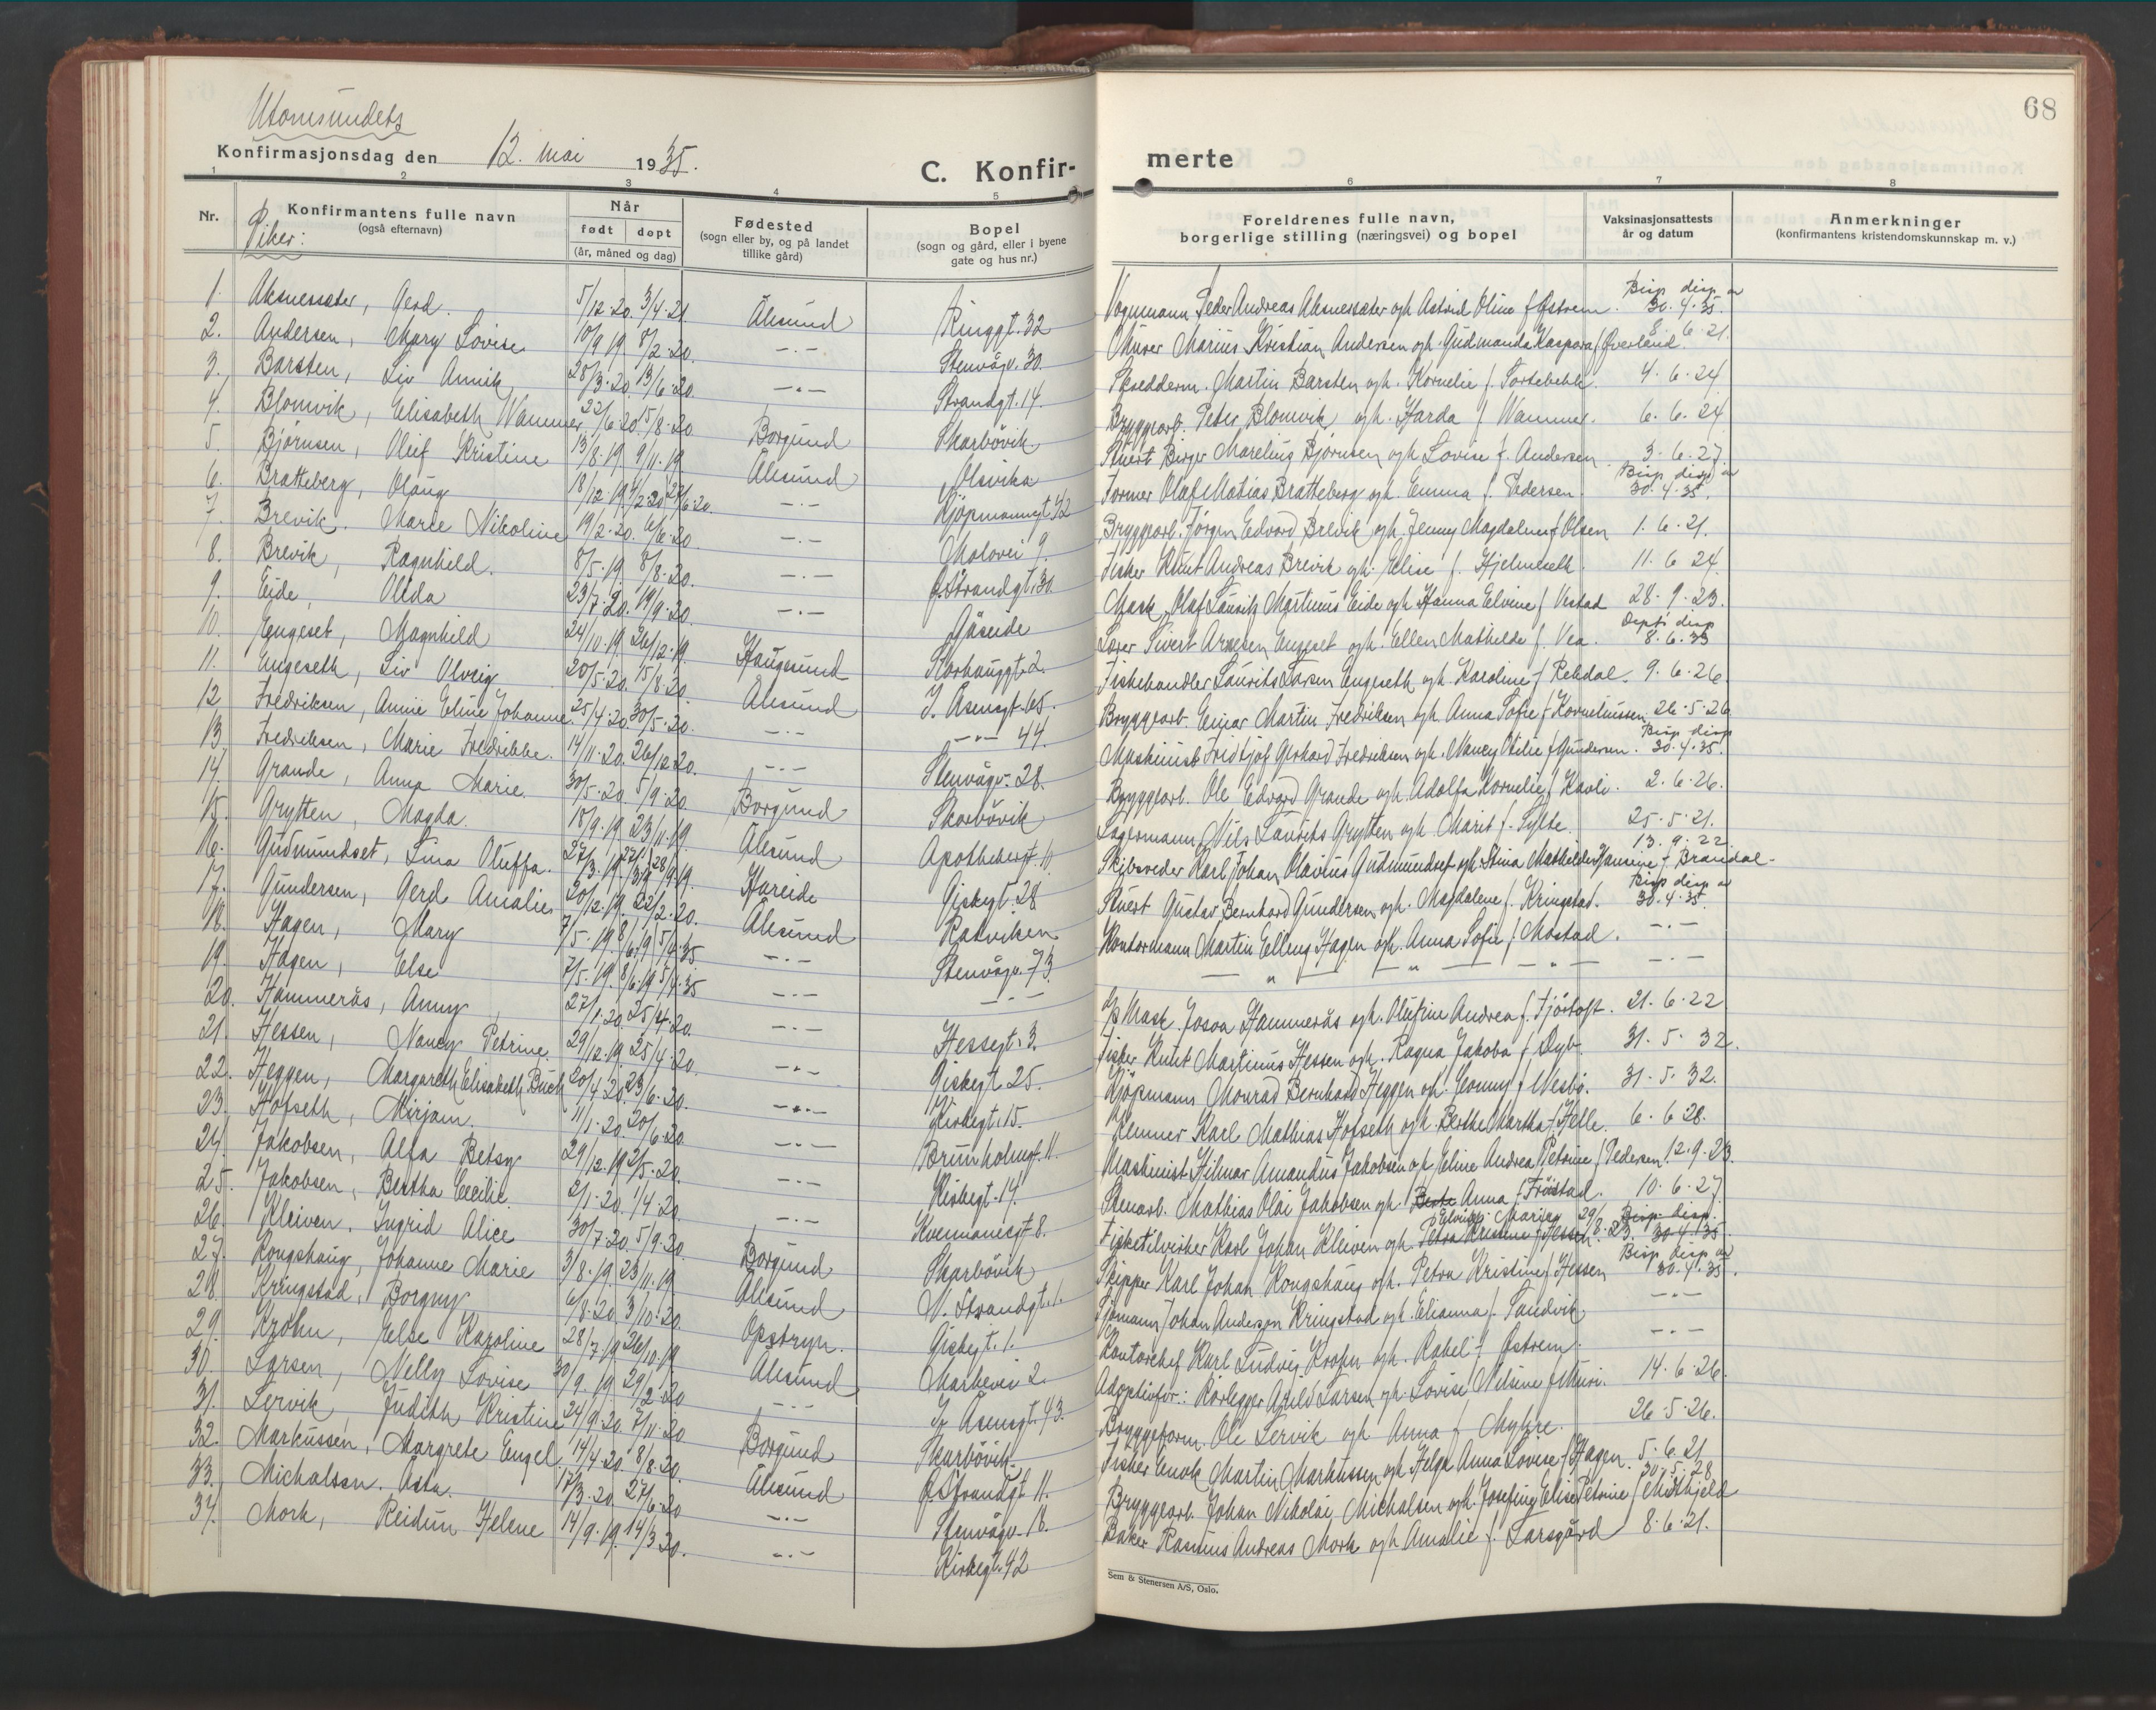 68
Utomsundets
Konfirmasjonsdag den 12. mai 1935.
C. Konfir-
merte
1 2 3 4 5 6 7 8
Nr.
Konfirmantens fulle navn
(også efternavn)
Piker:
Når
født døpt
(år, måned og dag)
Fødested
(sogn eller by, og på landet
tillike gård)
Bopel
(sogn og gård, eller i byene
gate og hus nr.)
Foreldrenes fulle navn,
borgerlige stilling (næringsvei) og bopel
Vaksinasjonsattests
år og datum
Anmerkninger
(konfirmantens kristendomskunnskap m. v.)
1. Aksnessæter, Gerd. 5/12·20. 3/4·21. Ålesund Ringgt. 32 Vognmann Peder Andreas Aksnessæter og h. Astrid Oline f. Østrem. Bisp. disp. av 30.4.35.
2. Andersen, Mary Lovise 10/9 19. 8/2·20. —.— Stenvågv. 30. Murer Marius Kristian Andersen og h. Gudmunda Kaspara f. Øverland. 8.6.21.
3. Barsten, Liv Annik 28/3·20. 13/6·20. —.— Strandgt. 14. Skredderm. Martin Barsten og h. Kornelie f. 4.6.24
4. Blomvik, Elisabeth Wammer 22/6·20. 15/8·20. Borgund Skarbövik Bryggearb. Peter Blomvik og h. Harda f. Wammer. 6.6.24
5. Bjørnsen, Oleif Kristine 13/8·19. 9/11·19 Ålesund Olsvika Stuert Birger Marelius Bjørnsen og h. Lovise f. Andersen. 3.6.27.
6. Bratteberg, Olaug 18/12·19. 27/6·20. —.— Kjøpmannsgt 42 Former Olaf Matias Bratteberg og h. Emma f. Pedersen. Bisp. disp. av 30.4.35.
7. Brevik, Marie Nikoline 19/2·20. 6/6·20. —.— Molovei 9. Bryggearb. Jørgen Edvard Brevik og h. Jenny Magdalene f. Olsen 1.6.21.
8. Brevik, Ragnhild. 8/5·19. 8/8·20. —.— Ø. Strandgt. 30. Fisker Knut Andreas Brevik og h. Elise f. Hjelmeseth. 11.6.24.
9. Eide, Olida 23/7·20. 19/9·20. —.— Gåseide Mask. Olaf Laurits Martinus Eide og h. Hanna Elvine f. Vestad 28.9.23.
10. Engeset, Magnhild 24/10·19. 26/12·19. Haugesund Storhauggt. 2. Lærer Sivert Arnesen Engeset og h. Ellen Mathilde f. Vea. Dept. disp. 8.6.33
11. Engeseth, Liv Olveig 20/5·20. 15/8·20. Ålesund I. Åsensgt. 65. Fiskehandler Laurits Larsen Engeseth og h. Karoline f. Rekdal. 9.6.26.
12. Fredriksen, Annie Eline Johanne 25/4·20. 30/5·20. —.— —"— 44. Bryggearb. Einar Martin Fredriksen og h. Anna Sofie f. Korneliussen. 26.5.26
13. Fredriksen, Marie Fredrikke. 14/11·20. 26/12·20. —.— Stenvågv. 28. Maskinist Fridtjof Gerhard Fredriksen og h. Nancy Otilie f. Gundersen. Bisp. disp. 30.4.35.
14. Grande, Anna Marie. 30/5·20. 5/9·20 Borgund Skarbövik Bryggearb. Ole Edvard Grande og h. Adolfa Kornelie f. Kavli. 2.6.26.
15. Grytten, Magda. 15/9·19. 23/11·19. Ålesund Apothekergt. 10. Lagermann Nils Laurits Grytten og h. Marit f. Sylte. 25.5.21.
16. Gudmundset, Lina Oluffa. 27/3·19. 28/9·19. Hareide Giskegt. 28 Skibsreder Karl Johan Olavius Gudmundset og h. Stina Mathilde Hansine f. Brandal. 13.9.22
17. Gundersen, Gerd Amalie 20/12·19. 22/2·20. Ålesund Ratviken Stuert Gustav Bernhard Gundersen og h. Magdalene f. Kringstad. Bisp. disp. av 30.4.35.
18. Hagen, Mary 7/5·19. 8/6·19. 5/4·35 —.— Stenvågv. 73. Kontormann Martin Elling Hagen og h. Anna Sofie f. Mostad. —.—
19. Hagen, Else 7/5·19. 8/6·19 5/4·35 —.— —.— — " — — " — — " — —.—
20. Hammerås, Anny 27/1·20. 25/4·20. —.— Hessegt. 3. Mask. Josva Hammerås og h. Olufine Andrea f. Fjörtoft. 21.6.22
21. Hessen, Nancy Petrine. 29/12·19. 25/4·20 —.— Giskegt. 25. Fisker Knut Martinus Hessen og h. Ragna Jakoba f. Dyb. 31.5.32.
22. Heggen, Margareth Elisabeth Buch 20/4·20. 23/6·20. —.— Kirkegt. 15. Kjøpmann Monrad Bernhard Heggen og h. Conny f. Nesbö. 31.5.32.
23. Hofseth, Mirjam. 11/1·20. 20/6·20 —.— Brunholmgt. 11. Kemner Karl Mathias Hofseth og h. Berthe Martha f. Helle. 6.6.28.
24. Jakobsen, Alfa Betsy 29/12·19. 2/5·20. —.— Kirkegt. 14. Maskinist Hilmar Amandus Jakobsen og h. Eline Andrea Petrine f. Pedersen. 12.9.23.
25. Jakobsen, Bertha Cecilie. 2/1·20. 1/4·20. —.— Kvennanesgt. 8. Stenarb. Mathias Olai Jakobsen og h. Anna f. Fröistad. 10.6.27.
26. Kleiven. Ingrid Alice 30/7·20. 5/9·20. Borgund Skarbövik Fisketilvirker Karl Johan Kleiven og h. Petra Kristine f. Hessen. 29/8·23. Bisp. disp. 30.4.35.
27. Kongshaug, Johanne Marie 3/8·19. 23/11·19. Ålesund N. Strandgt. 1. Skipper Karl Johan Kongshaug og h. Petra Kristine f. Hessen Bisp. disp. av 30.4.35.
28. Kringstad, Borgny 6/8·20. 3/10·20. Opstryn. Giskegt. 1. Sjömann Johan Anderson Kringstad og h. Elianna f. Sandvik —.—
29. Krohn, Else Karoline 28/7·19. 26/10·19 Ålesund Markevei 2. Kontorchef Karl Ludvig Krohn og h. Rakel f. Østrem. —.—
30. Larsen, Nelly Lovise 30/9·19. 29/2·20 —.— I. Åsensgt. 43. Adoptivfor.: Rörlegger Arild Larsen og h. Lovise Nilsine f. Muri. 14.6.26.
31. Lervik, Judith Kristine 24/9·20. 7/11·20 Borgund Skarbövik. Bryggeform. Ole Lervik og h. Anna f. Myhre. 26.5.26.
32. Markussen, Margrete Engel. 14/4·20. 8/8·20. Ålesund Ø. Strandgt. 11. Fisker Enok Martin Markussen og h. Helga Anna Lovise f. Hagen. 5.6.21
33. Michalsen. Asta. 17/3·20. 27/6·20 —.— Stenvågv. 18. Bryggearb. Johan Nikolai Michalsen og h. Josefine Elise Petrine f. Midtkjeld 30.5.28
34. Mork, Reidun Helene 14/9·19. 14/3·20. —.— Kirkegt. 42 Baker Rasmus Andreas Mork og h. Amalie f. Larsgård 8.6.21.
Sem & Stenersen A/S, Oslo.